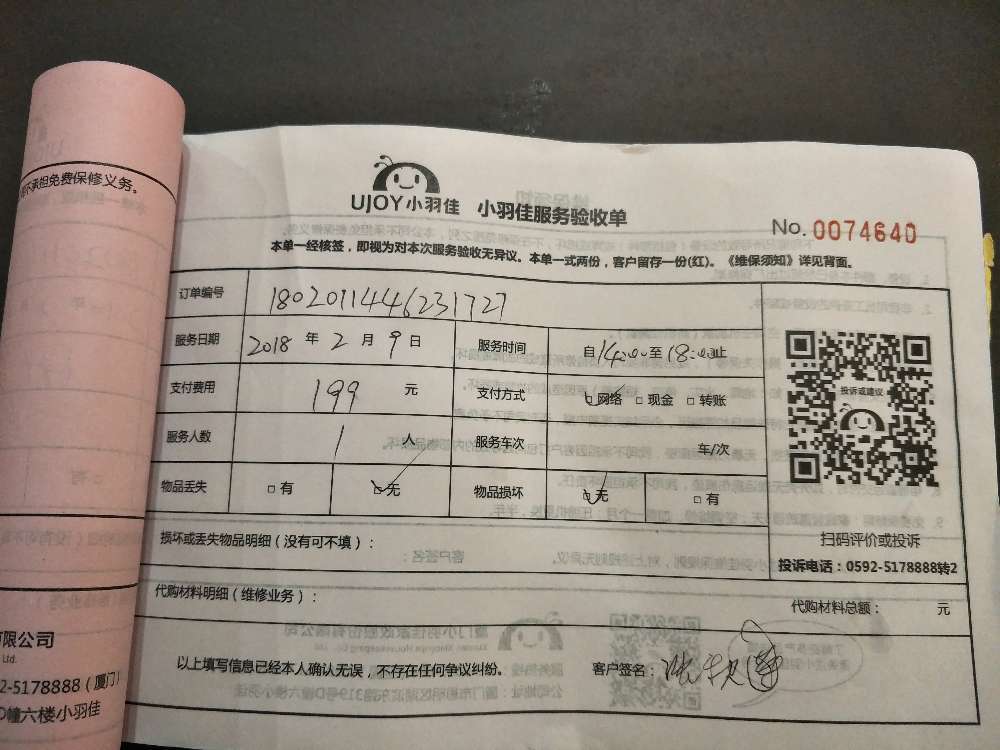 不承担免费保修义务。
UJOY小羽佳 小羽佳服务验收单
No. 0074640
本单一经核签，即视为对本次服务验收无异议。本单一式两份，客户留存一份(红)。《维保须知》详见背面。
订单编号 1802011446231727
服务日期 2018 年 2 月 9 日 服务时间 自14:00至18:00止
支付费用 199 元 支付方式 网络 □ 现金 □ 转账
投诉或建议
服务人数 1 人 服务车次 车/次
物品丢失 □ 有 □ 无 物品损坏 □ 无 □ 有
扫码评价或投诉
投诉电话：0592-5178888转2
损坏或丢失物品明细（没有可不填）：
代购材料明细（维修业务）： 代购材料总额： 元
以上填写信息已经本人确认无误，不存在任何争议纠纷。 客户签名：
有限公司
Ltd.
2-5178888（厦门）
D幢六楼小羽佳